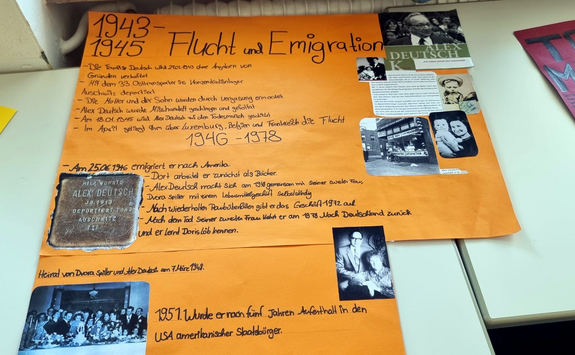 1943-
1945
Flucht und Emigration
- Die Familie Deutsch wird ohne Angaben von
Gründen verhaftet
- Mit dem 33. Osttransport ins Konzentrationslager
Auschwitz deportiert
- Die Mutter und der Sohn wurden durch Vergasung ermordet
- Alex Deutsch wurde misshandelt und gefoltert
- Am 18.01.1945 wird Alex Deutsch auf den Todesmarsch geschickt
- Im April gelingt ihm über Luxemburg, Belgien und Frankreich die Flucht
1946-1978
- Am 25.06.1946 emigriert er nach Amerika.
- Dort arbeitet er zunächst als Bäcker.
- Alex Deutsch macht sich am gemeinsam mit seiner zweiten Frau,
Dvora Spiller mit einem Lebensmittelgeschäft Selbstständig
- Nach wiederholten Raubüberfällen gibt er das Geschäft 1972 auf
- Nach dem Tod seiner zweiten Frau kehrt er am 1978 nach Deutschland zurück
und er lernt Doris Löb kennen.
ALEX
DEUTSCH
HIER WOHNTE
ALEX DEUTSCH
JG. 1913
DEPORTIERT 1943
AUSCHWITZ
Heirat von Dvora Spiller und Alex Deutsch am 7. März 1948.
1951. Wurde er nach fünf Jahren Aufenthalt in den
USA amerikanischer Staatsbürger.